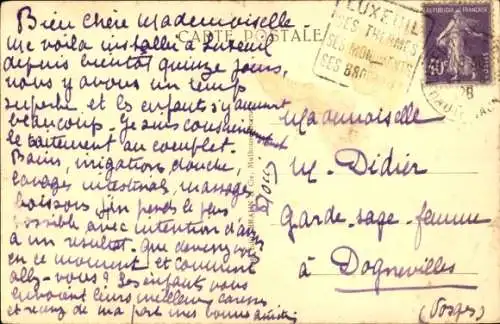 Bien chère Mademoiselle
Me voila installée à Luxeuil
depuis bientôt quinze jours,
nous y avons un temps
superbe et les enfants s'y amusent
beaucoup. Je suis
le traitement au complet.
Bains, irrigations, douche,
lavages intestinal, massages,
boissons j'en prends le plus
possible avec intention d'avoir
un résultat. Que devenez vous
en ce moment et comment
allez-vous? Les enfants vous
envoient leurs meilleures
et recevez de ma part mes bonnes amitiés
CARTE POSTALE
LUXEUIL
SES THERMES
SES MONUMENTS
SES
REPUBLIQUE FRANÇAISE
40c
28
Mademoiselle
M. Didier
Garde-sage-femme
à Dognevilles
(Vosges)